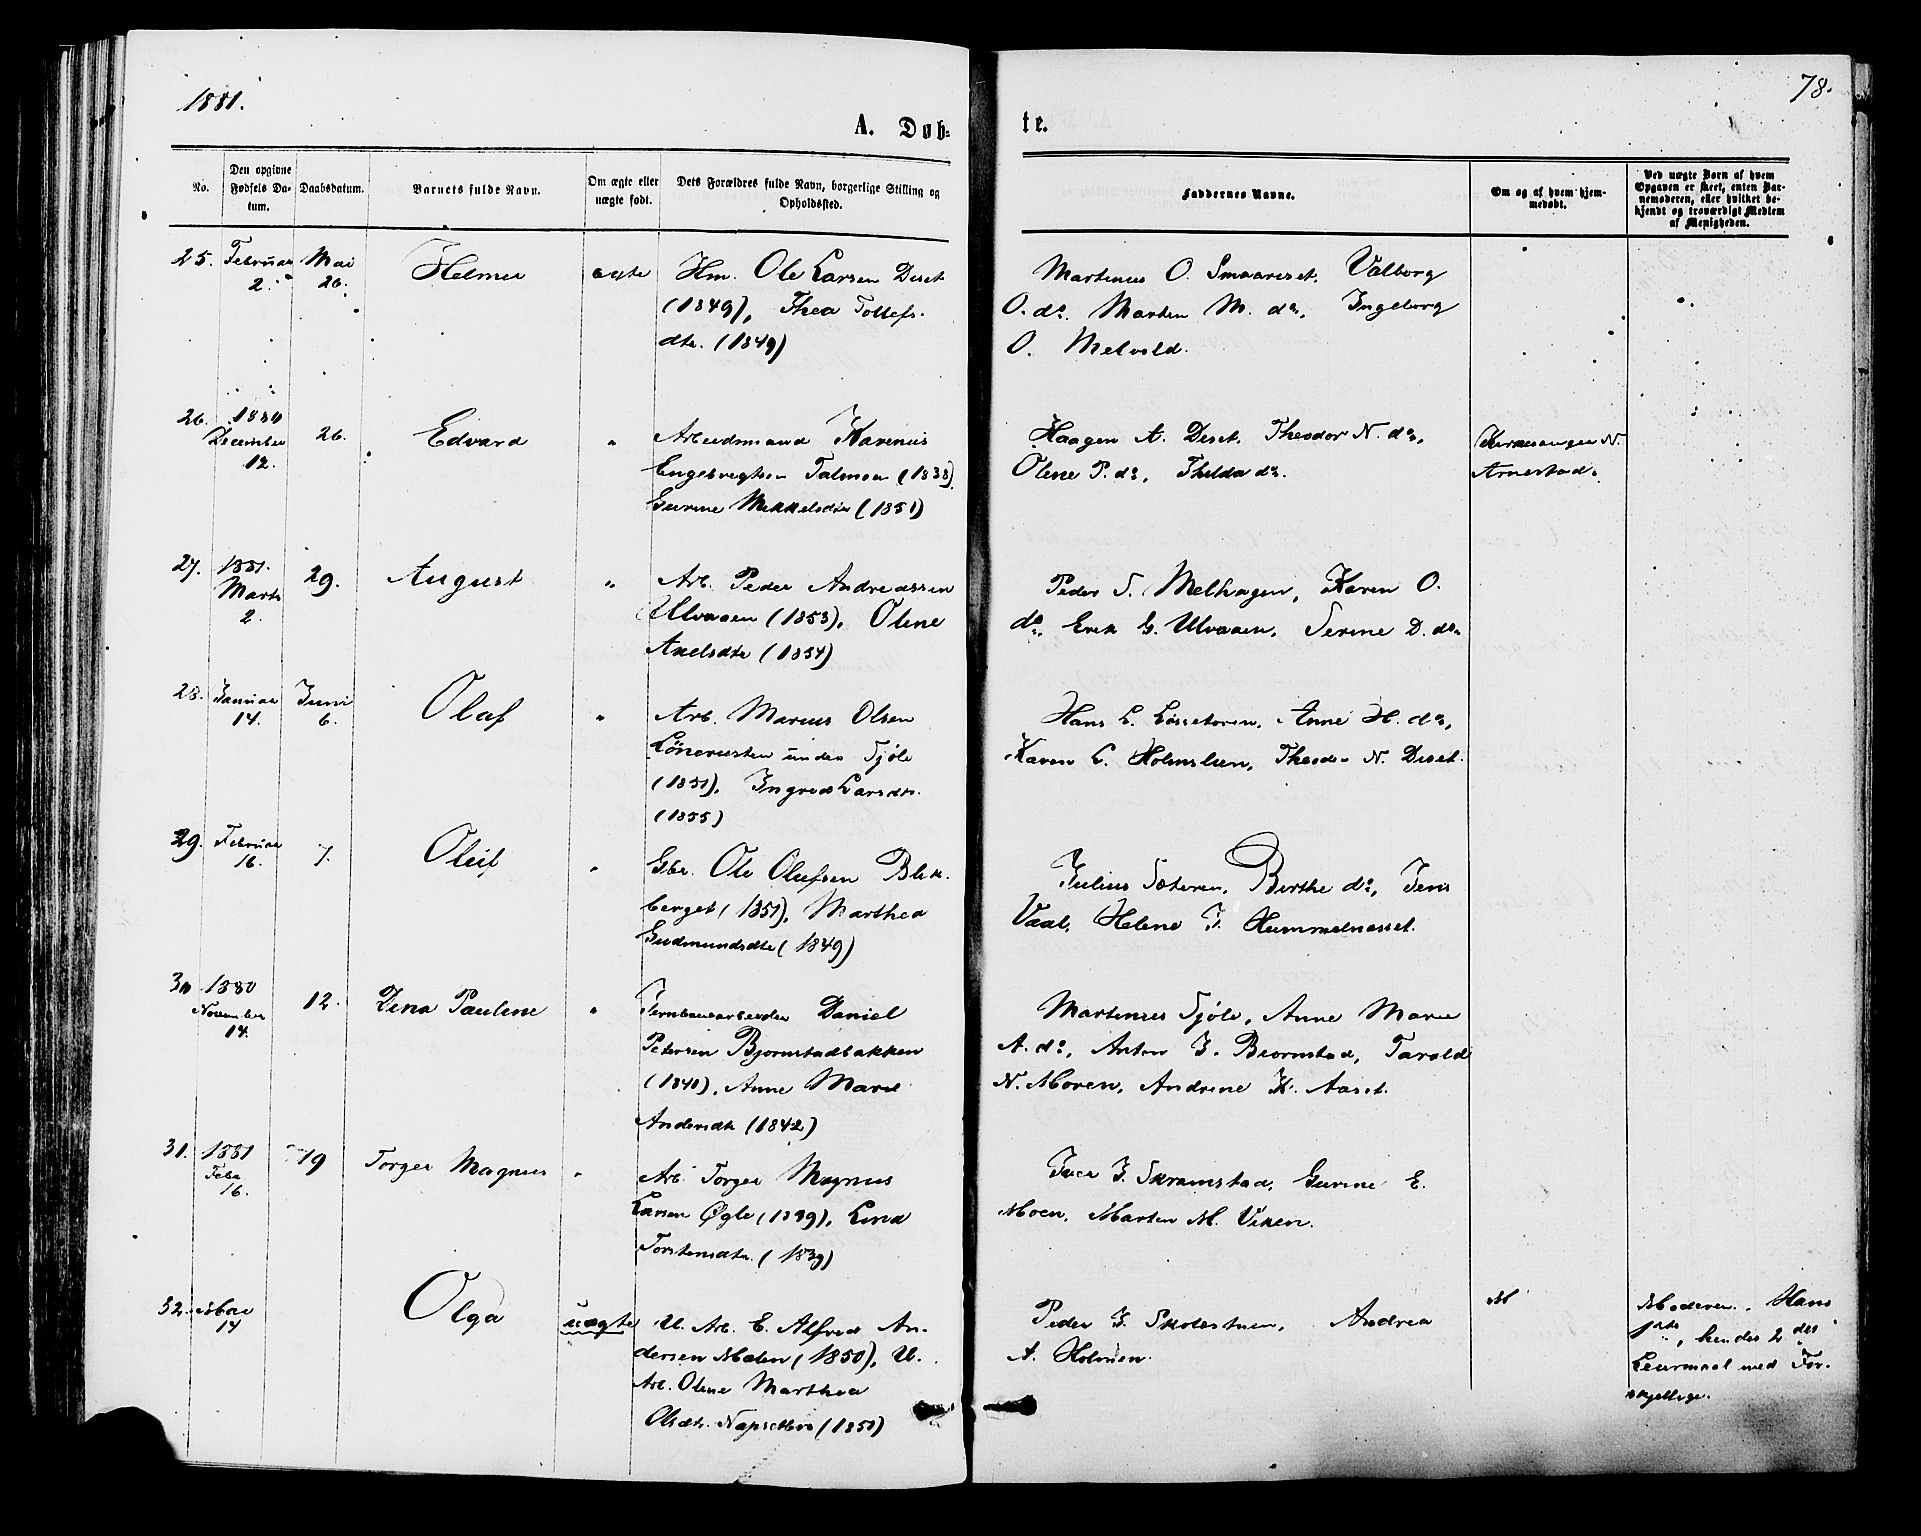 1881.
78.
A. Døb-
te.
No.
Den opgivne Fødsels Da-tum.
Daabsdatum.
Barnets fulde Navn.
Om ægte eller uægte født.
Dets Forældres fulde Navn, borgerlige Stilling og Opholdssted.
Faddernes Navne.
Om og af hvem hjem-medøbt.
Ved uægte Born af hvem Opgaven er skeet, enten Bar-nemoderen, eller hvilket be-kjendt og troværdigt Medlem af Menigheden.
25. Februar Mai
2. 26.
Helmer ægte Hm. Ole Larsen Deset
(1849), Thea Tollefs-
dtr. (1849)
Martinus O. Smaariset, Valborg
O. do. Marten M. do, Ingeborg
O. Melvold.
26. 1880
December 26.
12.
Edvard " Arbeidsmand Karenus
Engebregtsen Talmoen (1838)
Gurine Mikkelsdtr (1851)
Haagen A. Deset, Theodor N. do,
Olene P. do, Thilda do.
Kirkesanger N.
Arnestad.
27. 1881.
Marts 29.
2.
August " Arb. Peder Andreassen
Ulvaaen (1853), Olene
Axelsdtr (1854)
Peder S. Melhagen, Karen O.
do, Erik G. Ulvaaen, Serine D. do.
28. Januar Juni
14. 6.
Olaf " Arb. Marius Olsen
under Sjøle
(1851), Ingrid Larsdtr.
(1855)
Hans L. Løssetoren, Anne H. do,
Karen L. Holmslien, Theodor N. Deset.
29. Februar 7.
16.
Oluf " Gbr. Ole Olufsen Blek-
berget (1851), Marthea
Gudmundsdtr (1849)
Julius Sæteren, Berthe do, Jens
Vaal, Helene J. Hummelnesset.
30 1880
November 12.
14.
Dina Pauline " Jernbanearbeider Daniel
Petersen Bjørnstadbakken
(1840), Anne Marie
Andersdtr (1842)
Martinus Sjøle, Anne Marie
A. do, Anton J. Bjørnstad, Tarald
N. Moren, Andrine K. Aaset.
31. 1881 19
Febr
16.
Torger Magnus " Arb. Torger Magnus
Larsen Øgle (1839), Lina
Torstensdtr. (1839)
Iver J. Skramstad, Gurine E.
Moen, Marten M. Viken.
32. Mai
14
Olga uægte U. Arb. E. Alfred An-
dersen Moen (1850), U.
Arb. Olene Marthea
Olsdtr. (1850)
Peder J. Skolestuen, Andrea
A. Holmen.
M
Moderen. Hans
1ste, hendes 2det
Leiermaal med For-
skjellige.